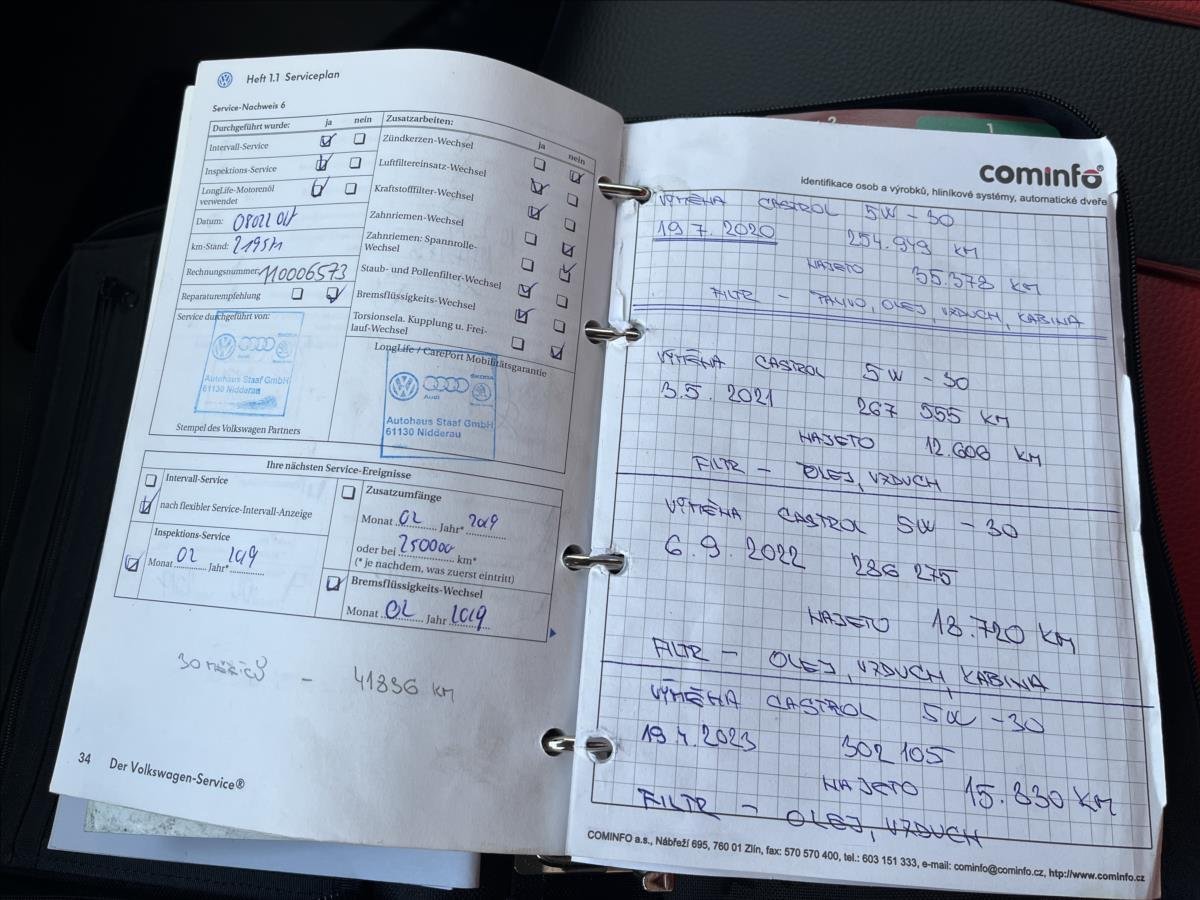 Heft 1.1 Serviceplan
Service-Nachweis 6
Durchgeführt wurde: ja nein
Intervall-Service
Inspektions-Service
LongLife-Motorenöl
verwendet
Datum:
km-Stand:
Rechnungsnummer 110006573
Reparaturempfehlung
Service durchgeführt von:
Audi
Autohaus Staaf GmbH
61130 Nidderau
Stempel des Volkswagen Partners
Zusatzarbeiten: ja nein
Zündkerzen-Wechsel
Luftfiltereinsatz-Wechsel
Kraftstofffilter-Wechsel
Zahnriemen-Wechsel
Zahnriemen: Spannrolle-
Wechsel
Staub- und Pollenfilter-Wechsel
Bremsflüssigkeits-Wechsel
Torsionsela. Kupplung u. Frei-
lauf-Wechsel
LongLife / CarePort Mobilitätsgarantie
Audi
Autohaus Staaf GmbH
61130 Nidderau
Ihre nächsten Service-Ereignisse
Intervall-Service
nach flexibler Service-Intervall-Anzeige
Inspektions-Service
Monat 02 Jahr* 2019
Zusatzumfänge
Monat 02 Jahr* 2019
oder bei 250000 km*
(* je nachdem, was zuerst eintritt)
Bremsflüssigkeits-Wechsel
Monat 02 Jahr 2019
30 MĚSÍCŮ - 41836 KM
34 Der Volkswagen-Service®
2
1
cominfo®
identifikace osob a výrobků, hliníkové systémy, automatické dveře
VÝMĚNA CASTROL 5W-30
19.7.2020 254.949 KM
NAJETO 35.378 KM
FILTR - PALIVO, OLEJ, VZDUCH, KABINA
VÝMĚNA CASTROL 5W 30
3.5.2021 267 555 KM
NAJETO 12.606 KM
FILTR - OLEJ, VZDUCH
VÝMĚNA CASTROL 5W-30
6.9.2022 286 275
NAJETO 18.720 KM
FILTR - OLEJ, VZDUCH, KABINA
VÝMĚNA CASTROL 5W-30
19.4.2023 302 105
NAJETO 15.830 KM
FILTR - OLEJ, VZDUCH
COMINFO a.s., Nábřeží 695, 760 01 Zlín, fax: 570 570 400, tel.: 603 151 333, e-mail: cominfo@cominfo.cz, http://www.cominfo.cz